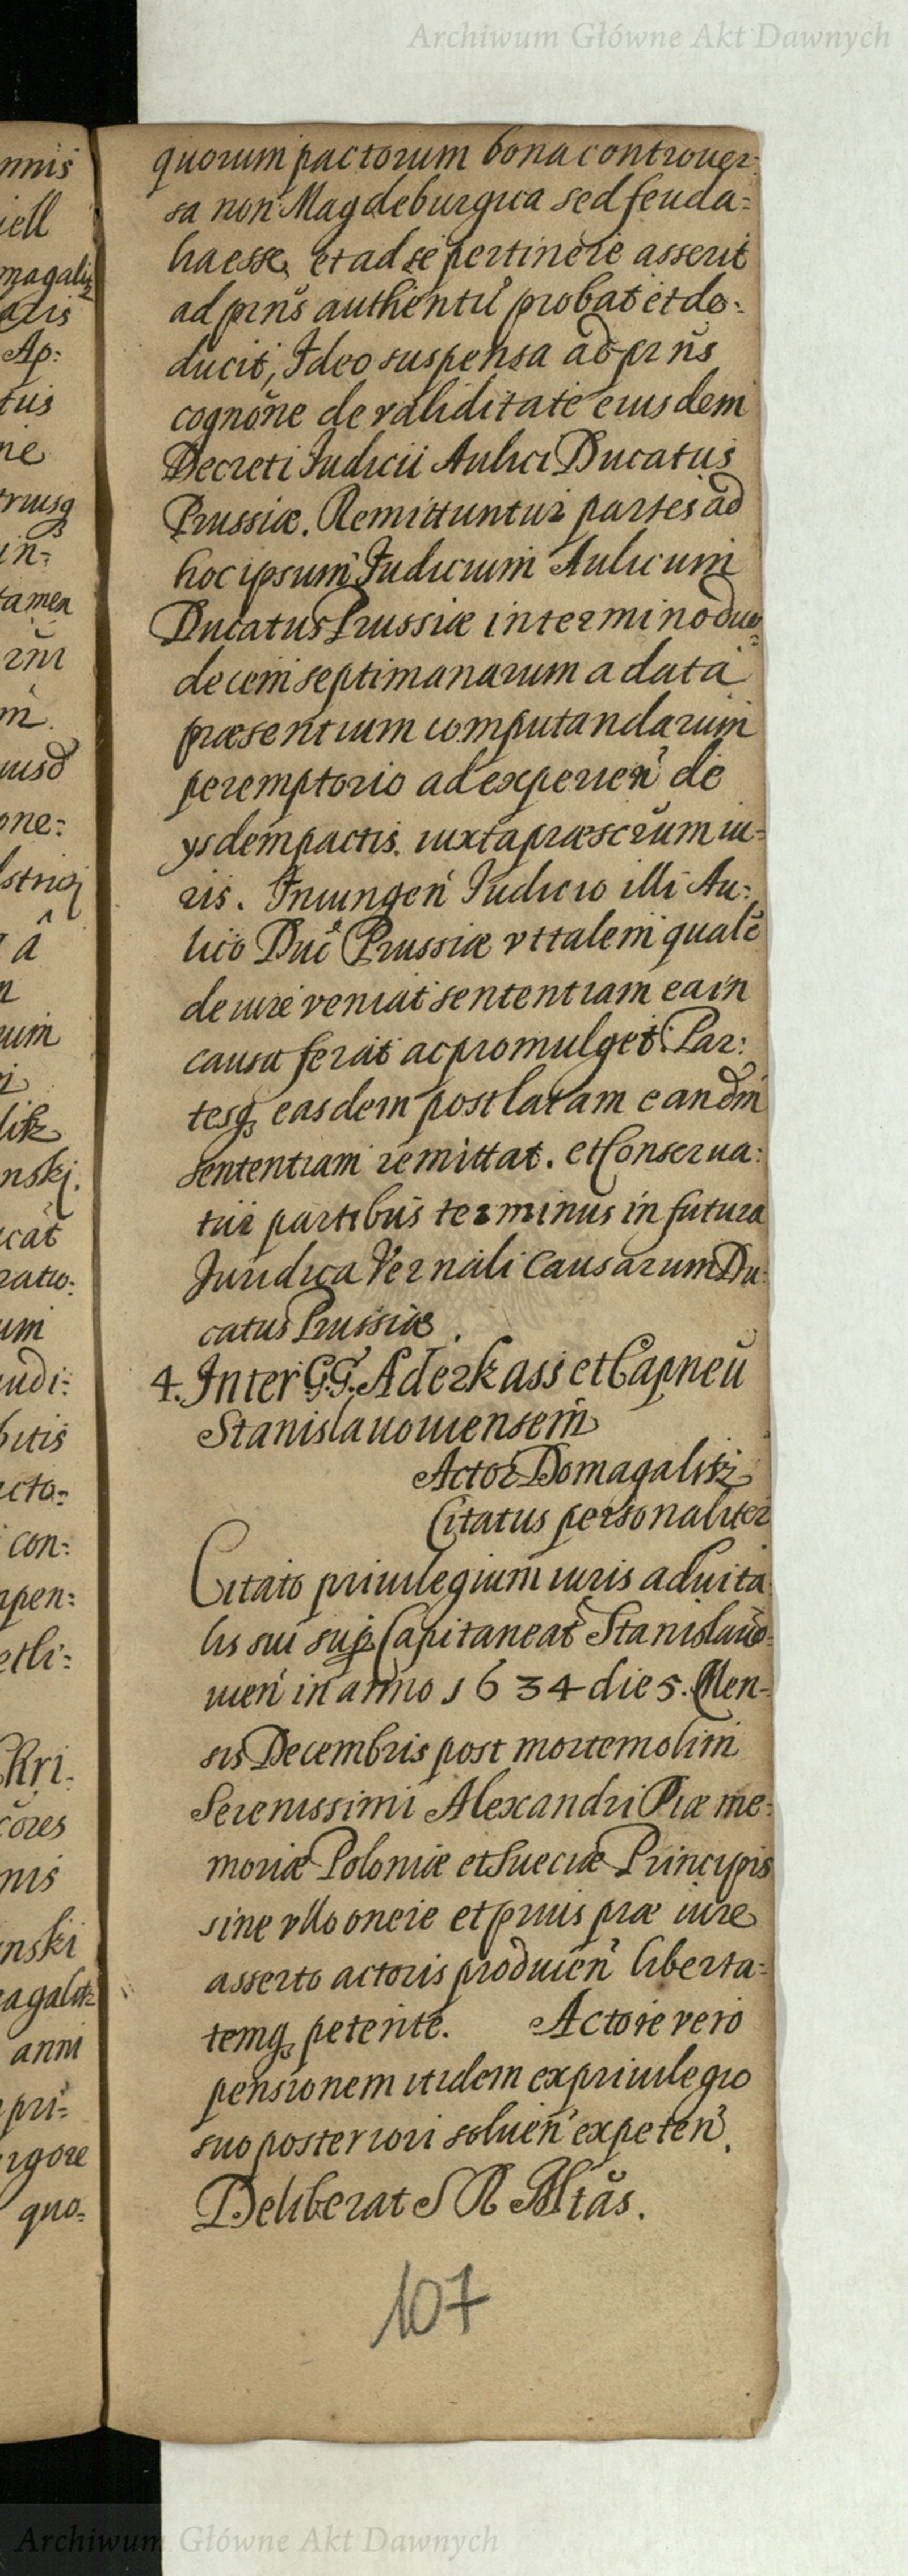 Archiwum Główne Akt Dawnych
quorum pactorum bona controuer-
sa non Magdeburgica sed feuda=
lia esse, et ad se pertinere asserit
ad prns authentu probat et de=
ducit, Ideo suspensa ad prns
cognone de validitate eiusdem
Decreti Iudicii Aulici Ducatus
Prussiæ. Remittuntur partes ad
hoc ipsum Iudicium Aulicum
Ducatus Prussiæ in termino duo=
decem septimanarum a data
præsentium computandarum
peremptorio ad experien de
ysdem pactis. iuxta præscrum iu=
ris. Iniungen Iudicio illi Au:
lico Duc Prussiæ vt talem quale
de iure veniat sententiam ea in
causa ferat ac promulget. Par:
tesq easdem post latam eandm
sententiam remittat. et Conserua:
tur partibus terminus in futura
Iuridica Vernali Causarum Du:
catus Prussiæ.
4. Inter G.G. Aderkass et Capneu
Stanislauouiensem
Actor Domagalisz
Citatus personaliter
Citato priuilegium iuris aduita
lis sui sup Capitaneat Stanislauo=
uien in anno 1634 die 5. Men-
sis Decembris post mortem olim
Serenissimi Alexandri Piæ me=
moriæ Poloniæ et Sueciæ Principis
sine vllo onere et prius præ iure
asserto actoris producen liberta=
temq petente. Actore vero
pensionem itidem ex priuilegio
suo posteriori soluen expeten.
Deliberat S R Mtas.
107
Archiwum Główne Akt Dawnych